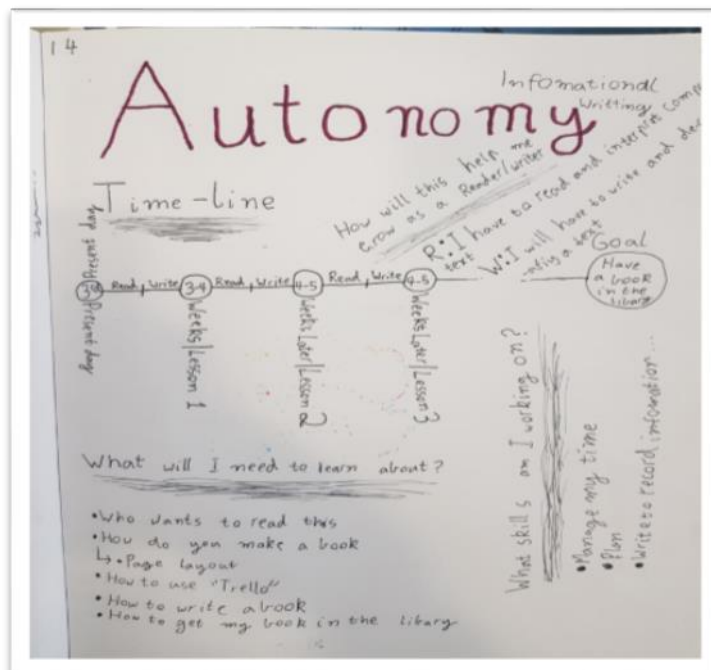 14
Autonomy
Infomational
Writting
Time-line
How will this help me
Grow as a Reader/writer
R: I have to read and interprit
text
W: I will have to write and
a text
Goal
Have
a book
in the
library
Present day
Read, Write
3-4
Weeks/Lesson 1
Read, Write
4-5
Weeks Later/Lesson 2
Read, Write
4-5
Weeks Later/Lesson 3
What will I need to learn about?
•Who wants to read this
•How do you make a book
↳•Page layout
•How to use "Trello"
•How to write a book
•How to get my book in the library
What skills am I working on?
•Manage my time
•Plan
•Write to record infomation...